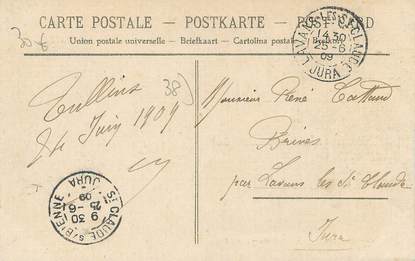 CARTE POSTALE – POSTKARTE – POST CARD
Union postale universelle – Briefkaart – Cartolina postale –
30 €
38)
Tullins
24 Juin 1909
Monsieur René
Brives
par Lavans les St Claude
Jura
LAVANS-LES-ST-CLAUDE
14 30
25 - 6
09
JURA
ST CLAUDE S/BIENNE
9 30
25 - 6
09
JURA